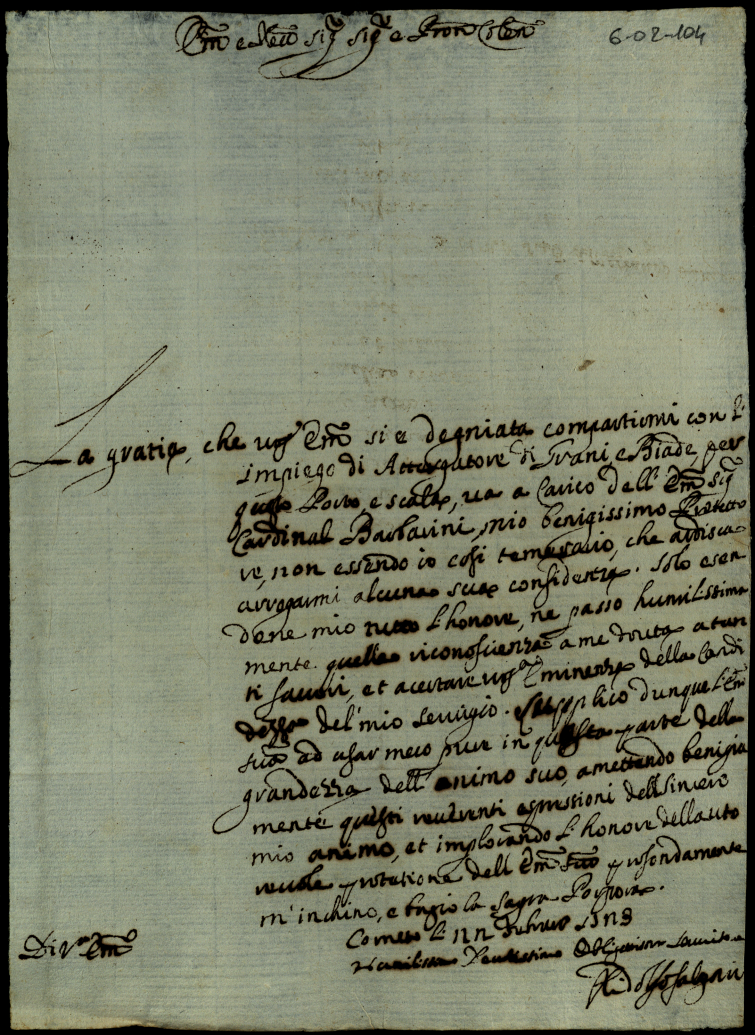 Em̃o e Reũo Sig.r Sig.r e Pron Colen̄
6-02-104
La gratia, che vr̃a Em̃a si è degniata compartirmi con l'
impiego di Attergatore di Grani e Biade per
questo Porto, e scala, va a Carico dell' Em̃o Sig.r
Cardinal Barbarini mio benigissimo Protetto
re, non essendo io cosi temerario, che ardisca
arrogarmi alcuna sua confidenza. Solo esen
done mio tutto l'honore, ne passo humilissima
mente quella riconoscienza a me douta a tan
ti fauori, et acertare vr̃a Eminenza della Candi
dezza del' mio seruigio. Supplico dunque l'Em̃a
sua ad usar meco pure in questa parte della
grandezza dell' animo suo, amettendo benigia
mente questi reuerenti espressioni dell sincero
mio animo, et implorando l'honore della auto
reuole protetione dell' Em̃a sua profondamente
m'inchino, e bagio la sagra Porpora.
Corneto li 22 Febraro
Di V.ra Em̃a
Humilissimo Deuotissimo Obligatissimo Seruitore